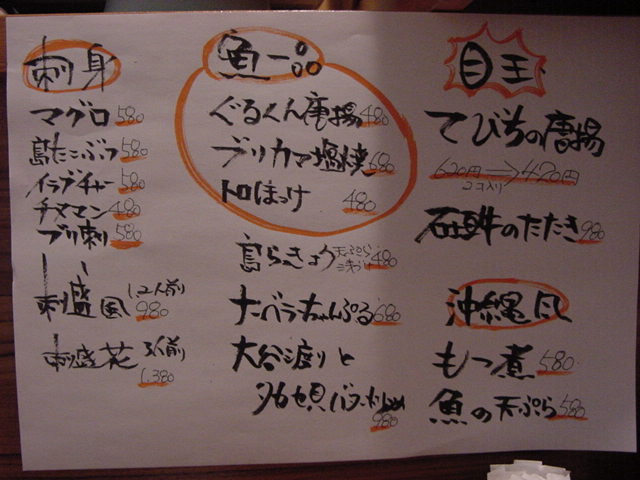 刺身
マグロ 580
島たこぶつ 580
イラブチャー 580
チヌマン 480
ブリ刺 580
刺盛 風 1.2人前り 980
刺盛 花 3人前り 1.380
魚一品
ぐるくん唐揚 480
ブリカマ塩焼 680
トロほっけ 480
島らっきょう 天ぷら 480
ナーベラちゃんぷる 680
大谷渡りと
タカセ貝バター炒め 980
目玉
てびちの唐揚
620円→420円
2コ入り
石垣牛のたたき 980
沖縄風
もつ煮 580
魚の天ぷら 580